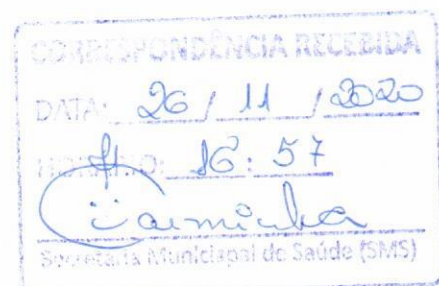 CORRESPONDÊNCIA RECEBIDA
DATA: 26 / 11 / 2020
HORÁRIO: 16: 57
Secretaria Municipal de Saúde (SMS)